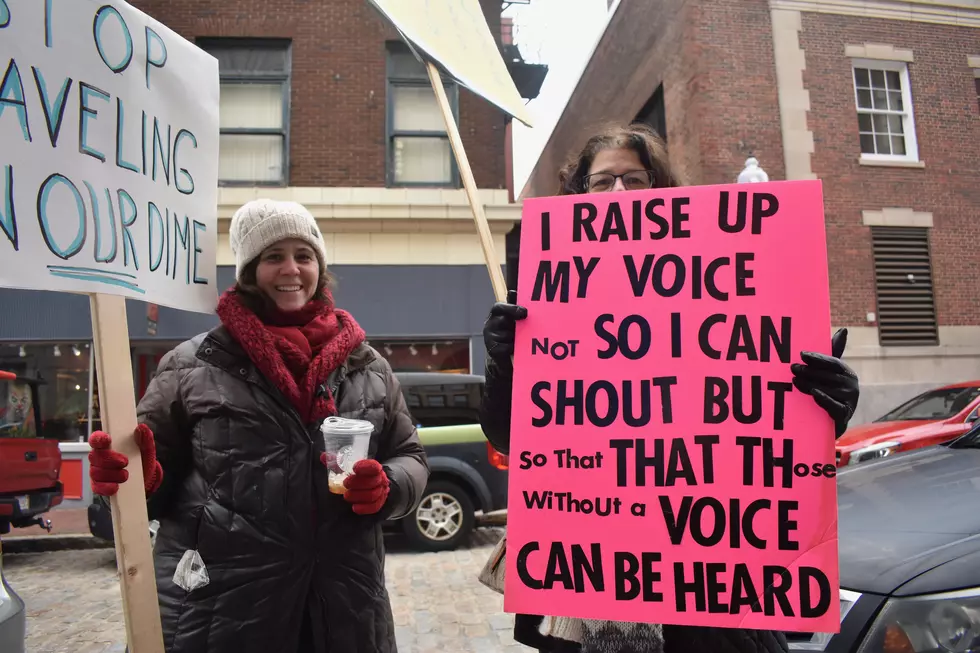 STOP
AVELING
N OUR DIME
I RAISE UP
MY VOICE
NOT SO I CAN
SHOUT BUT
So That THAT THose
WiThouT a VOICE
CAN BE HEARD